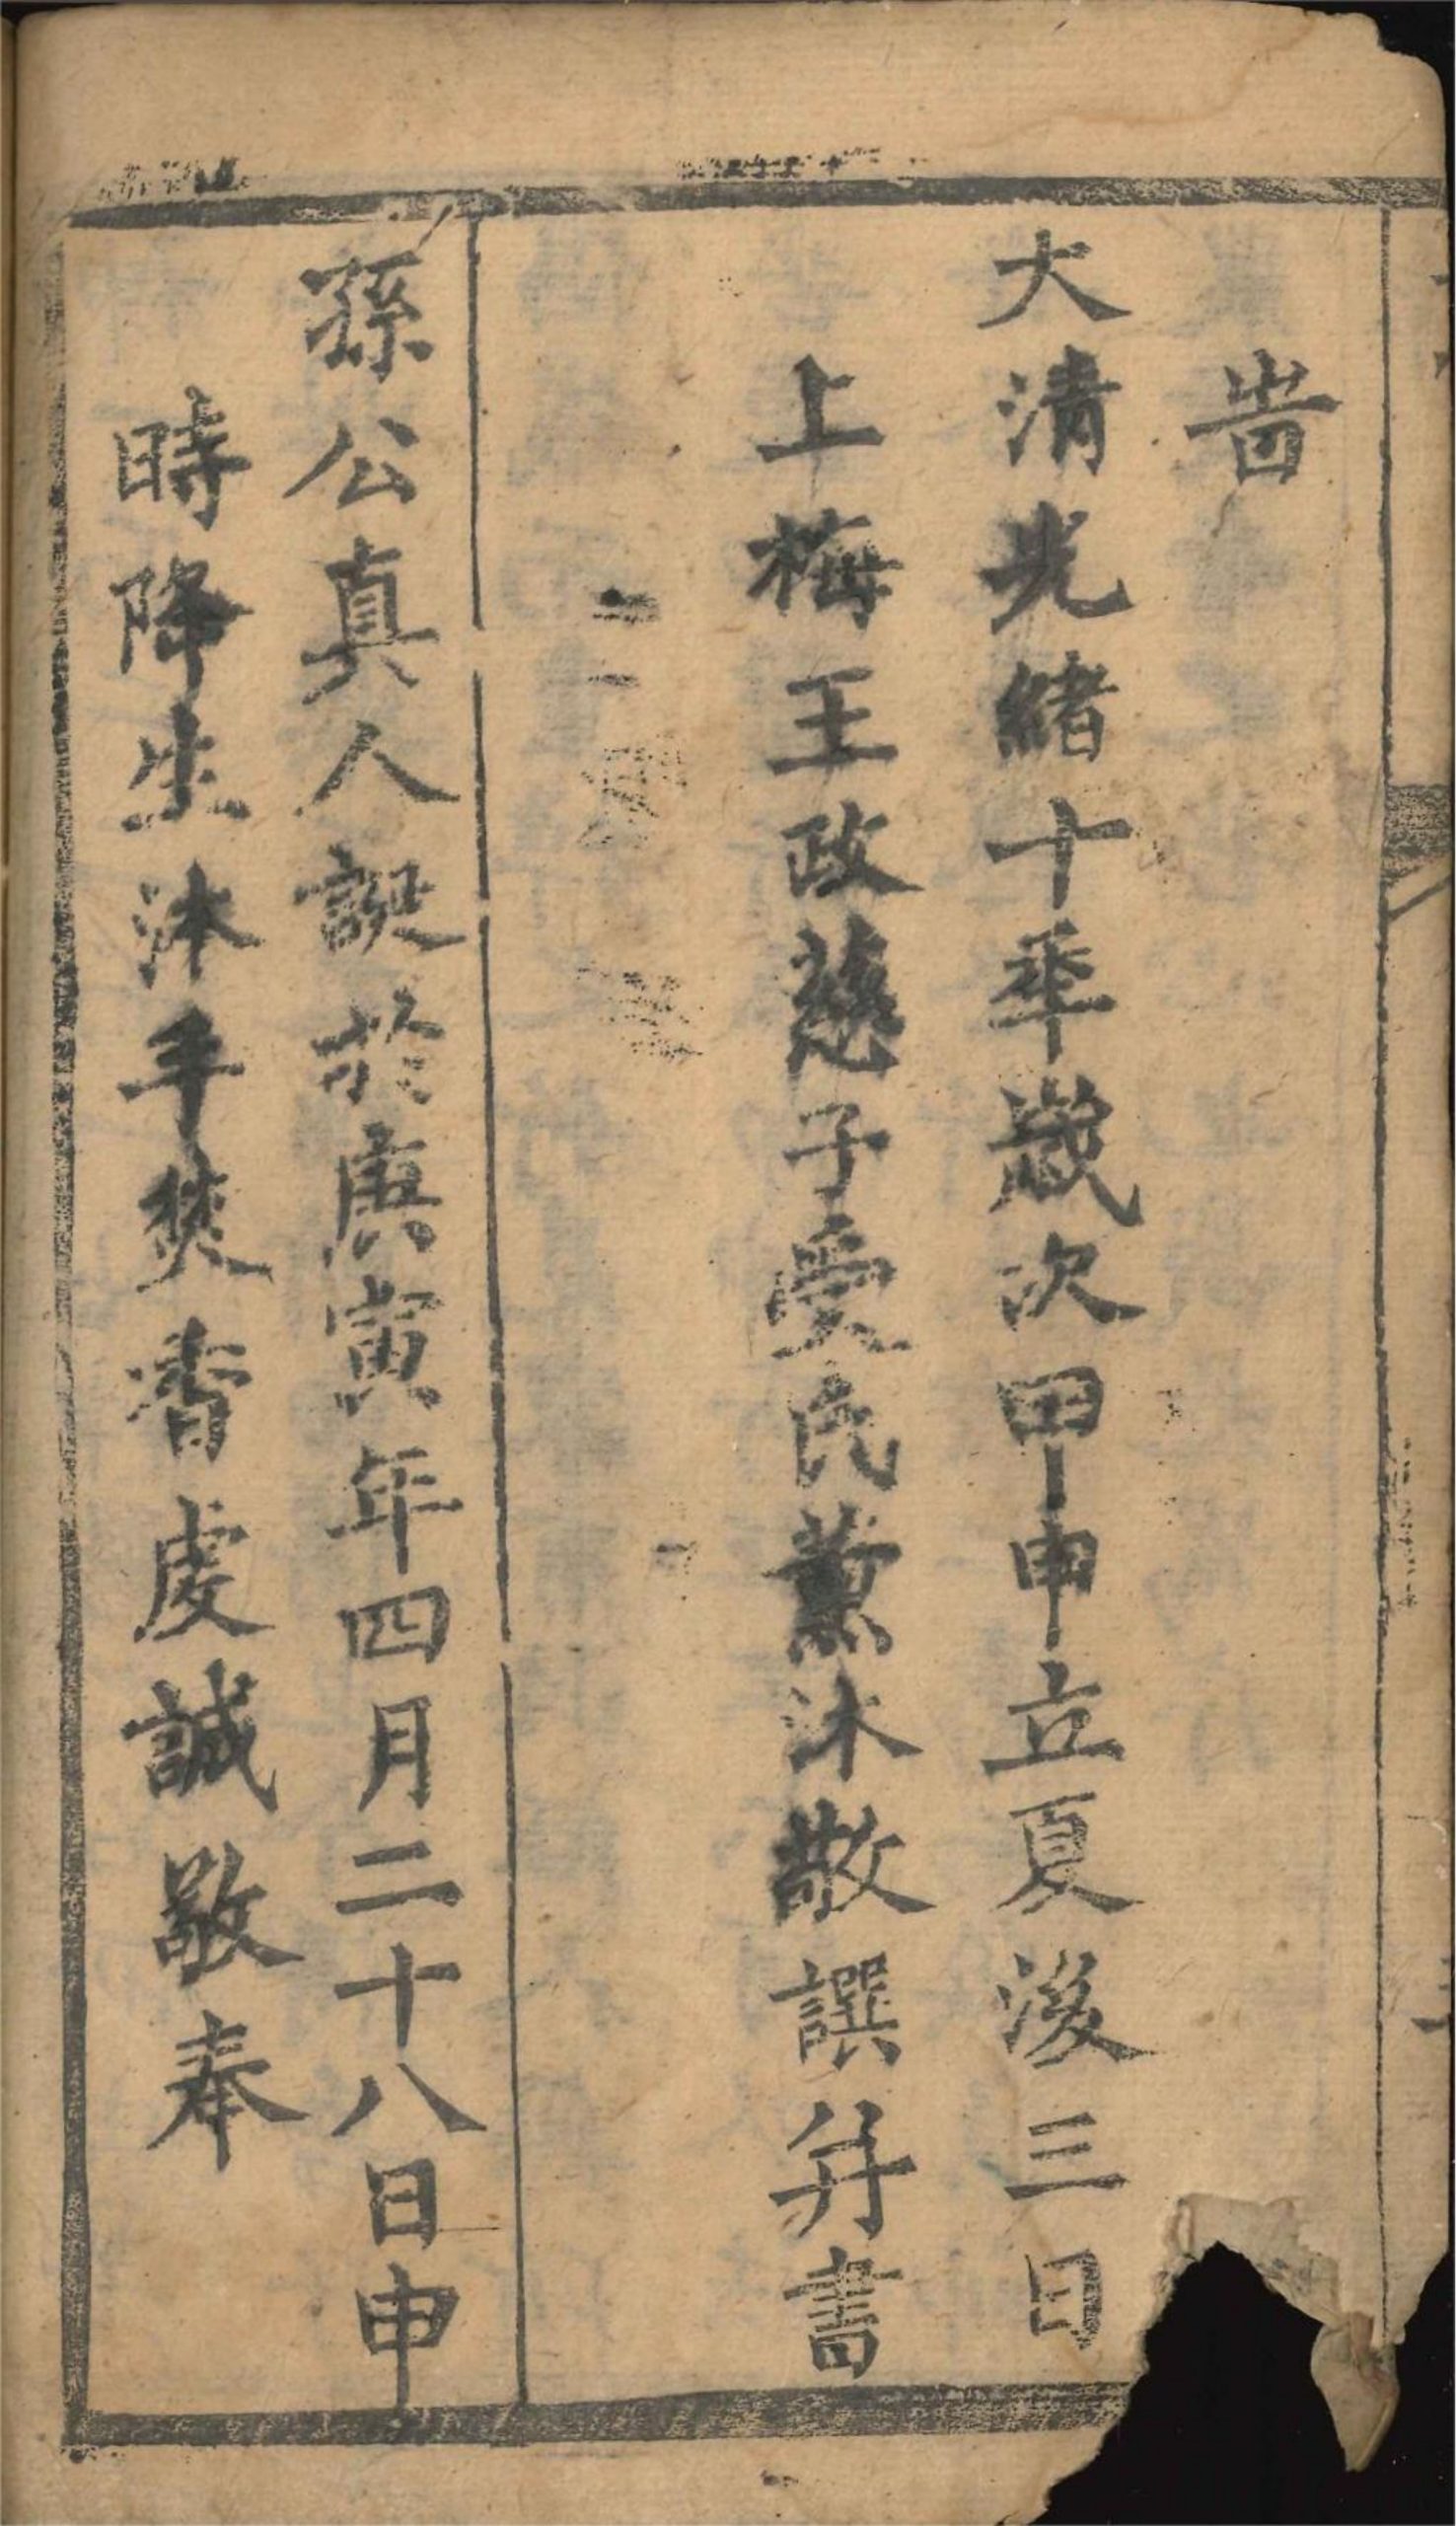 啬
大清光緒十年歲次甲申立夏後三日
上梅王政慈子受氏薰沐敬譔并書
孫公真人誕於庚寅年四月二十八日申
時降生沐手焚香虔誠敬奉